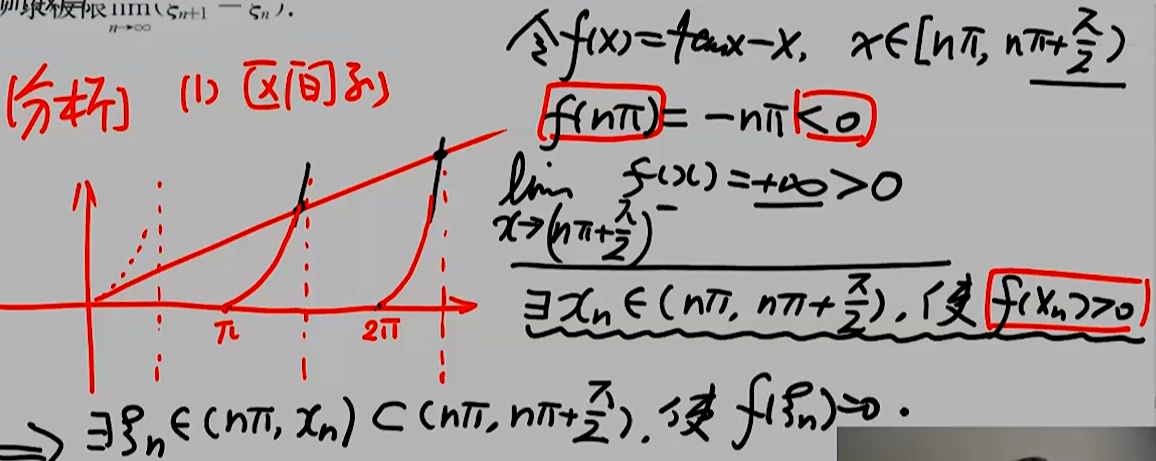 限 lim (ξₙ₊₁ − ξₙ).
n→∞
[分析] (1) 区间列
令 f(x)=tanx−x, x∈[nπ, nπ+π/2)
f(nπ)= −nπ<0
lim f(x)=+∞>0
x→(nπ+π/2)⁻
∃xₙ∈(nπ, nπ+π/2). 使 f(xₙ)>0
π 2π
⇒ ∃ξₙ∈(nπ, xₙ)⊂(nπ, nπ+π/2). 使 f(ξₙ)=0.